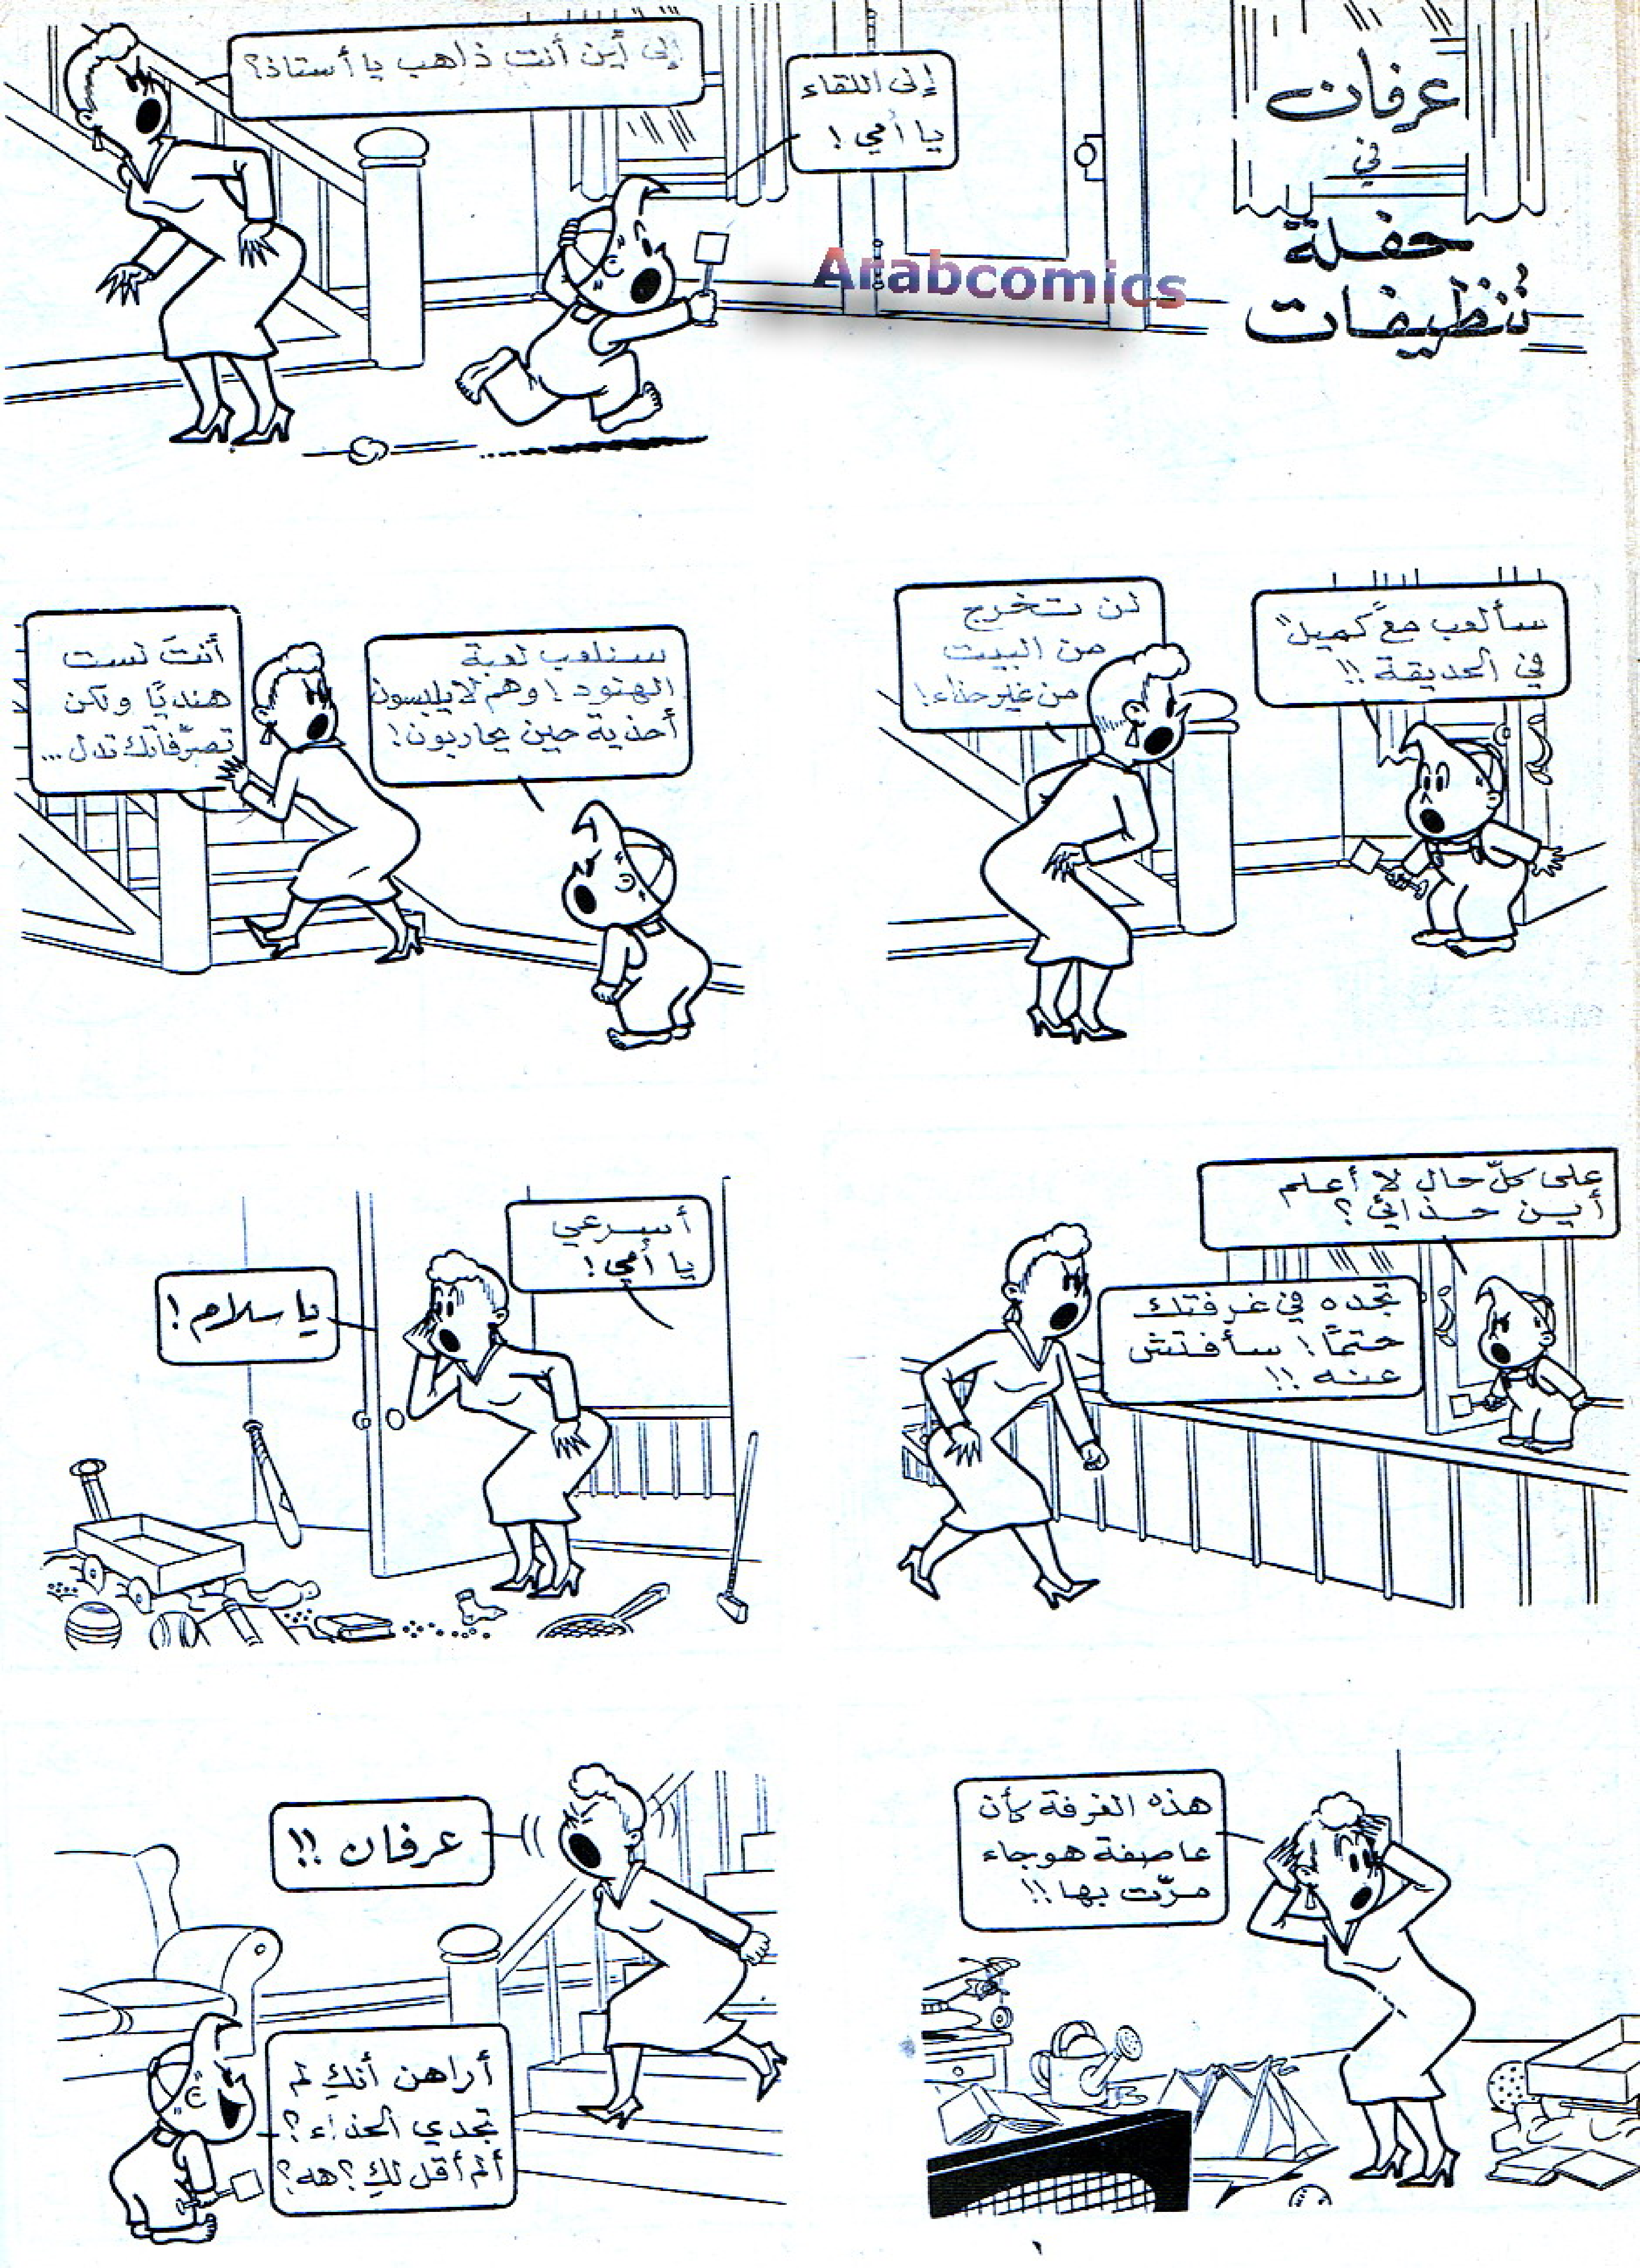 عرفان
في
حفلة
تنظيفات
إلى أين أنت ذاهب يا أستاذ؟
إلى اللقاء
يا أمي!
Arabcomics
سألعب مع "كميل"
في الحديقة!!
لن تخرج
من البيت
من غير حذاء!
سنلعب لعبة
الهنود! وهم لا يلبسون
أحذية حين يحاربون!
أنتَ لست
هنديًا ولكن
تصرّفاتك تدل...
على كلّ حال لا أعلم
أين حذائي؟
تجده في غرفتك
حتمًا! سأفتش
عنه!!
أسرعي
يا أمي!
يا سلام!
هذه الغرفة كأن
عاصفة هوجاء
مرّت بها!!
عرفان!!
أراهن أنكِ لم
تجدي الحذاء؟
ألم أقل لكِ؟ هه؟
١